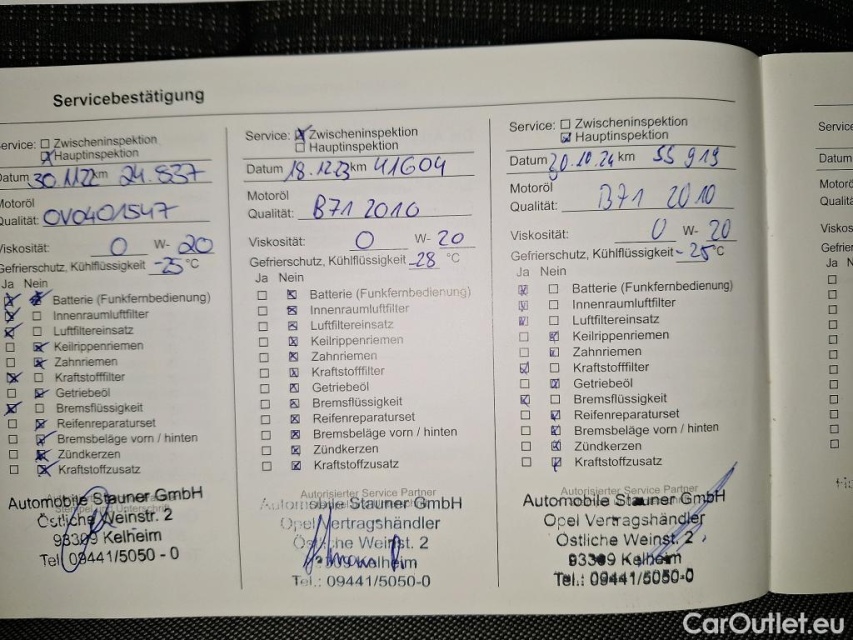 Servicebestätigung
ervice: Zwischeninspektion
Hauptinspektion
Datum 30.11.22 km 24.837
Motoröl
Qualität: OV0401547
Viskosität: 0 W- 20
Gefrierschutz, Kühlflüssigkeit -25 °C
Ja Nein
Batterie (Funkfernbedienung)
Innenraumluftfilter
Luftfiltereinsatz
Keilrippenriemen
Zahnriemen
Kraftstofffilter
Getriebeöl
Bremsflüssigkeit
Reifenreparaturset
Bremsbeläge vorn / hinten
Zündkerzen
Kraftstoffzusatz
Automobile Stauner GmbH
Östliche Weinstr. 2
93309 Kelheim
Tel 09441/5050 - 0
Service: Zwischeninspektion
Hauptinspektion
Datum 18.12.23 km 41604
Motoröl
Qualität: B71 2010
Viskosität: 0 W- 20
Gefrierschutz, Kühlflüssigkeit -28 °C
Ja Nein
Batterie (Funkfernbedienung)
Innenraumluftfilter
Luftfiltereinsatz
Keilrippenriemen
Zahnriemen
Kraftstofffilter
Getriebeöl
Bremsflüssigkeit
Reifenreparaturset
Bremsbeläge vorn / hinten
Zündkerzen
Kraftstoffzusatz
Autorisierter Service Partner
Automobile Stauner GmbH
Opel Vertragshändler
Östliche Weinst. 2
93309 Kelheim
Tel.: 09441/5050-0
Service: Zwischeninspektion
Hauptinspektion
Datum 30.10.24 km 55 919
Motoröl
Qualität: B71 2010
Viskosität: 0 W- 20
Gefrierschutz, Kühlflüssigkeit -25 °C
Ja Nein
Batterie (Funkfernbedienung)
Innenraumluftfilter
Luftfiltereinsatz
Keilrippenriemen
Zahnriemen
Kraftstofffilter
Getriebeöl
Bremsflüssigkeit
Reifenreparaturset
Bremsbeläge vorn / hinten
Zündkerzen
Kraftstoffzusatz
Autorisierter Service Partner
Automobile Stauner GmbH
Opel Vertragshändler
Östliche Weinst. 2
93309 Kelheim
Tel.: 09441/5050-0
Service
Datum
Motorö
Qualitä
Viskos
Gefrier
Ja N
CarOutlet.eu